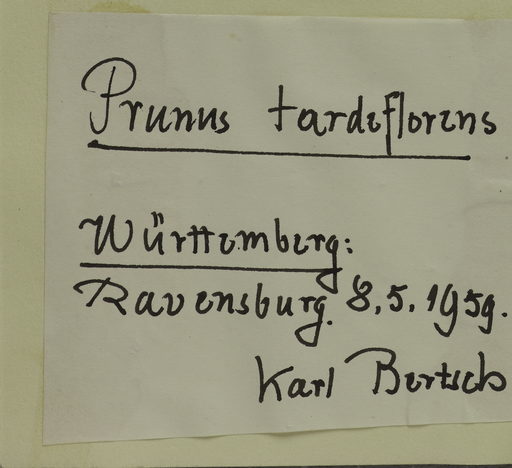 Prunus tardeflorens
Württemberg:
Ravensburg. 8.5.1959.
Karl Bertsch